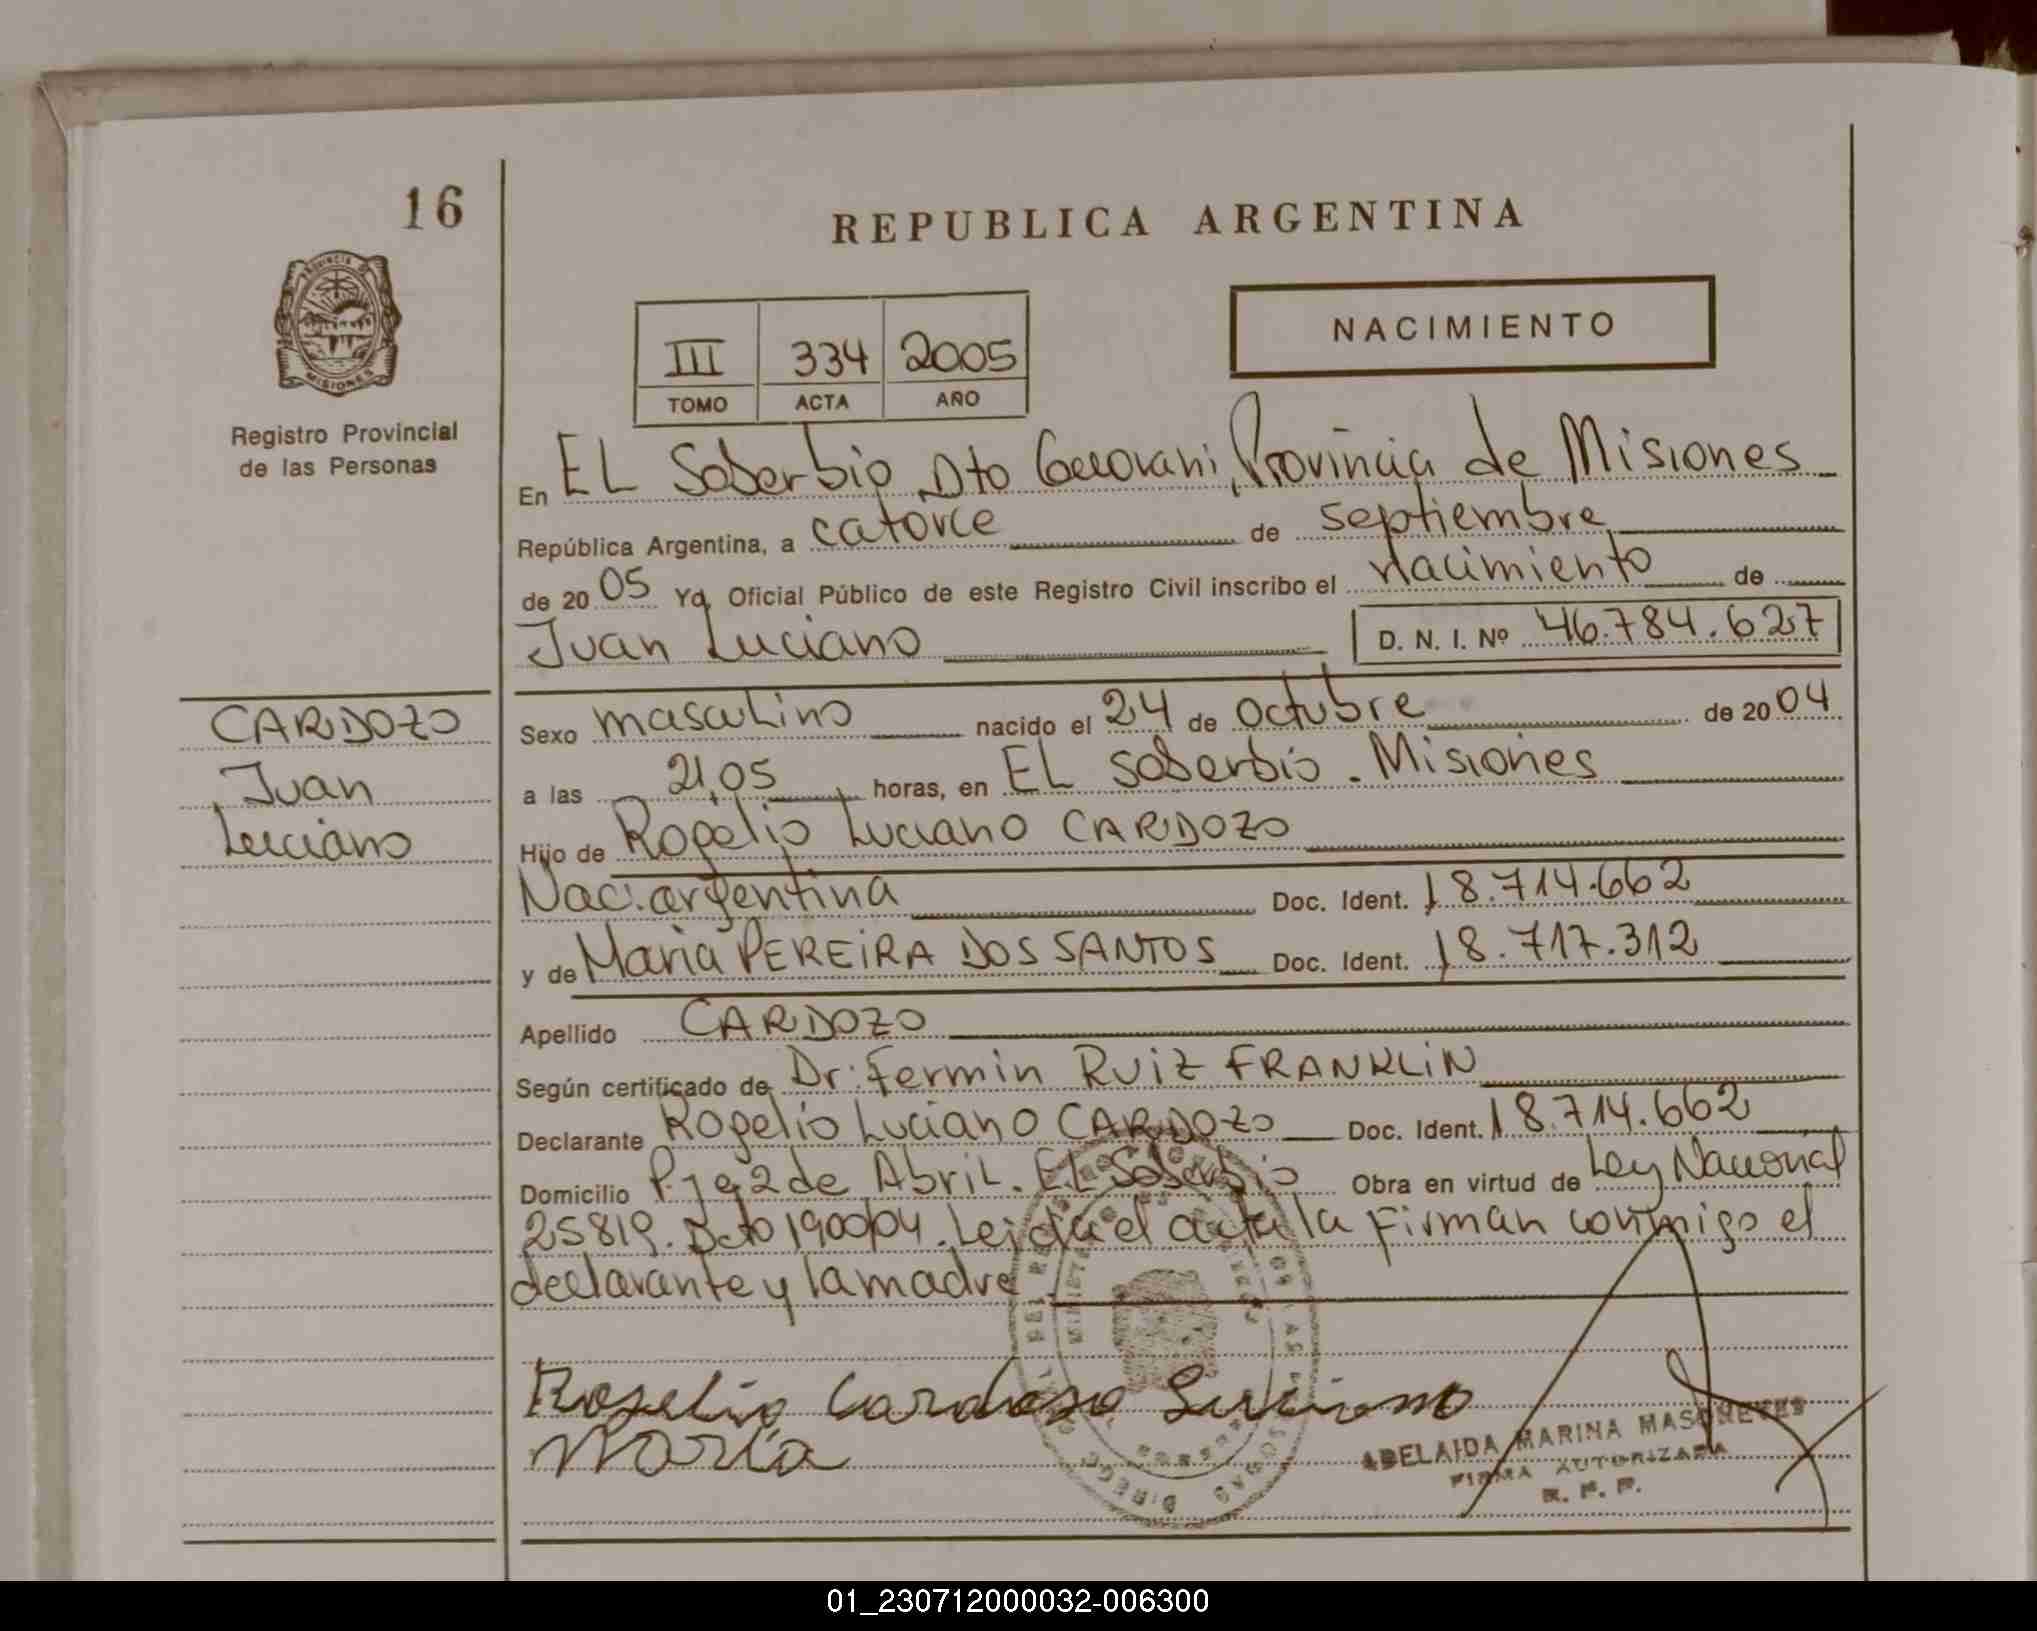 16
REPUBLICA ARGENTINA
PROVINCIA DE
MISIONES
Registro Provincial
de las Personas
III 334 2005
TOMO ACTA AÑO
NACIMIENTO
En EL Soberbio Dto Guarani, Provincia de Misiones
República Argentina, a catorce de septiembre
de 20 05 Yo, Oficial Público de este Registro Civil inscribo el nacimiento de
Juan Luciano D. N. I. Nº 46.784.627
CARDOZO
Juan
Luciano
Sexo masculino nacido el 24 de octubre de 20 04
a las 21,05 horas, en EL Soberbio. Misiones
Hijo de Rogelio Luciano CARDOZO
Nac: argentina Doc. Ident. 18.714.662
y de Maria PEREIRA DOS SANTOS Doc. Ident. 18.717.312
Apellido CARDOZO
Según certificado de Dr. Fermin RUIZ FRANKLIN
Declarante Rogelio Luciano CARDOZO Doc. Ident. 18.714.662
Domicilio Pje 2 de Abril. EL Soberbio Obra en virtud de Ley Nacional
25819. Dcto 1900/04. Leida el acta la firman conmigo el
declarante y la madre
Rogelio Cardoso Luciano
Maria
ADELAIDA MARINA MASONEVES
FIRMA AUTORIZADA
R. P. P.
01_230712000032-006300